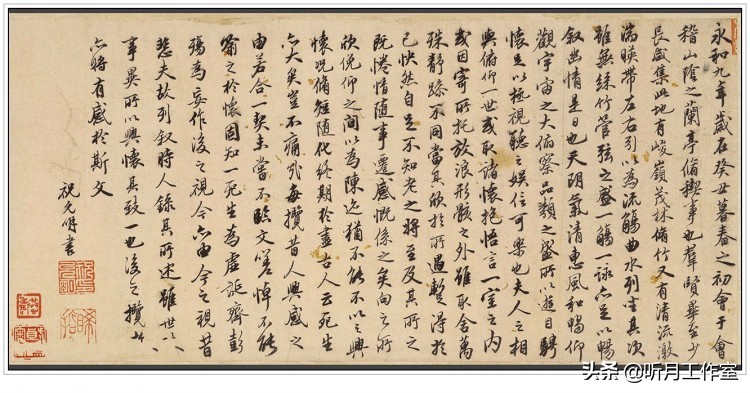 永和九年歲在癸丑暮春之初會于會
稽山陰之蘭亭脩稧事也羣賢畢至少
長咸集此地有峻嶺茂林脩竹又有清流激
湍暎帶左右引以為流觴曲水列坐其次
雖無絲竹管弦之盛一觴一詠亦足以暢
叙幽情是日也天朗氣清惠風和暢仰
觀宇宙之大俯察品類之盛所以遊目騁
懷足以極視聽之娛信可樂也夫人之相
與俯仰一世或取諸懷抱悟言一室之內
或因寄所托放浪形骸之外雖取舍萬
殊靜躁不同當其欣於所遇暫得於
己快然自足不知老之將至及其所之
既惓情隨事遷感慨係之矣向之所
欣俛仰之間以為陳迹猶不能不以之興
懷況脩短隨化終期於盡古人云死生
亦大矣豈不痛哉每攬昔人興感之
由若合一契未嘗不臨文嗟悼不能
喻之於懷固知一死生為虛誕齊彭
殤為妄作後之視今亦由今之視昔
悲夫故列叙時人錄其所述雖世
事異所以興懷其致一也後之攬者
亦將有感於斯文
祝允明書
头条 @听月工作室